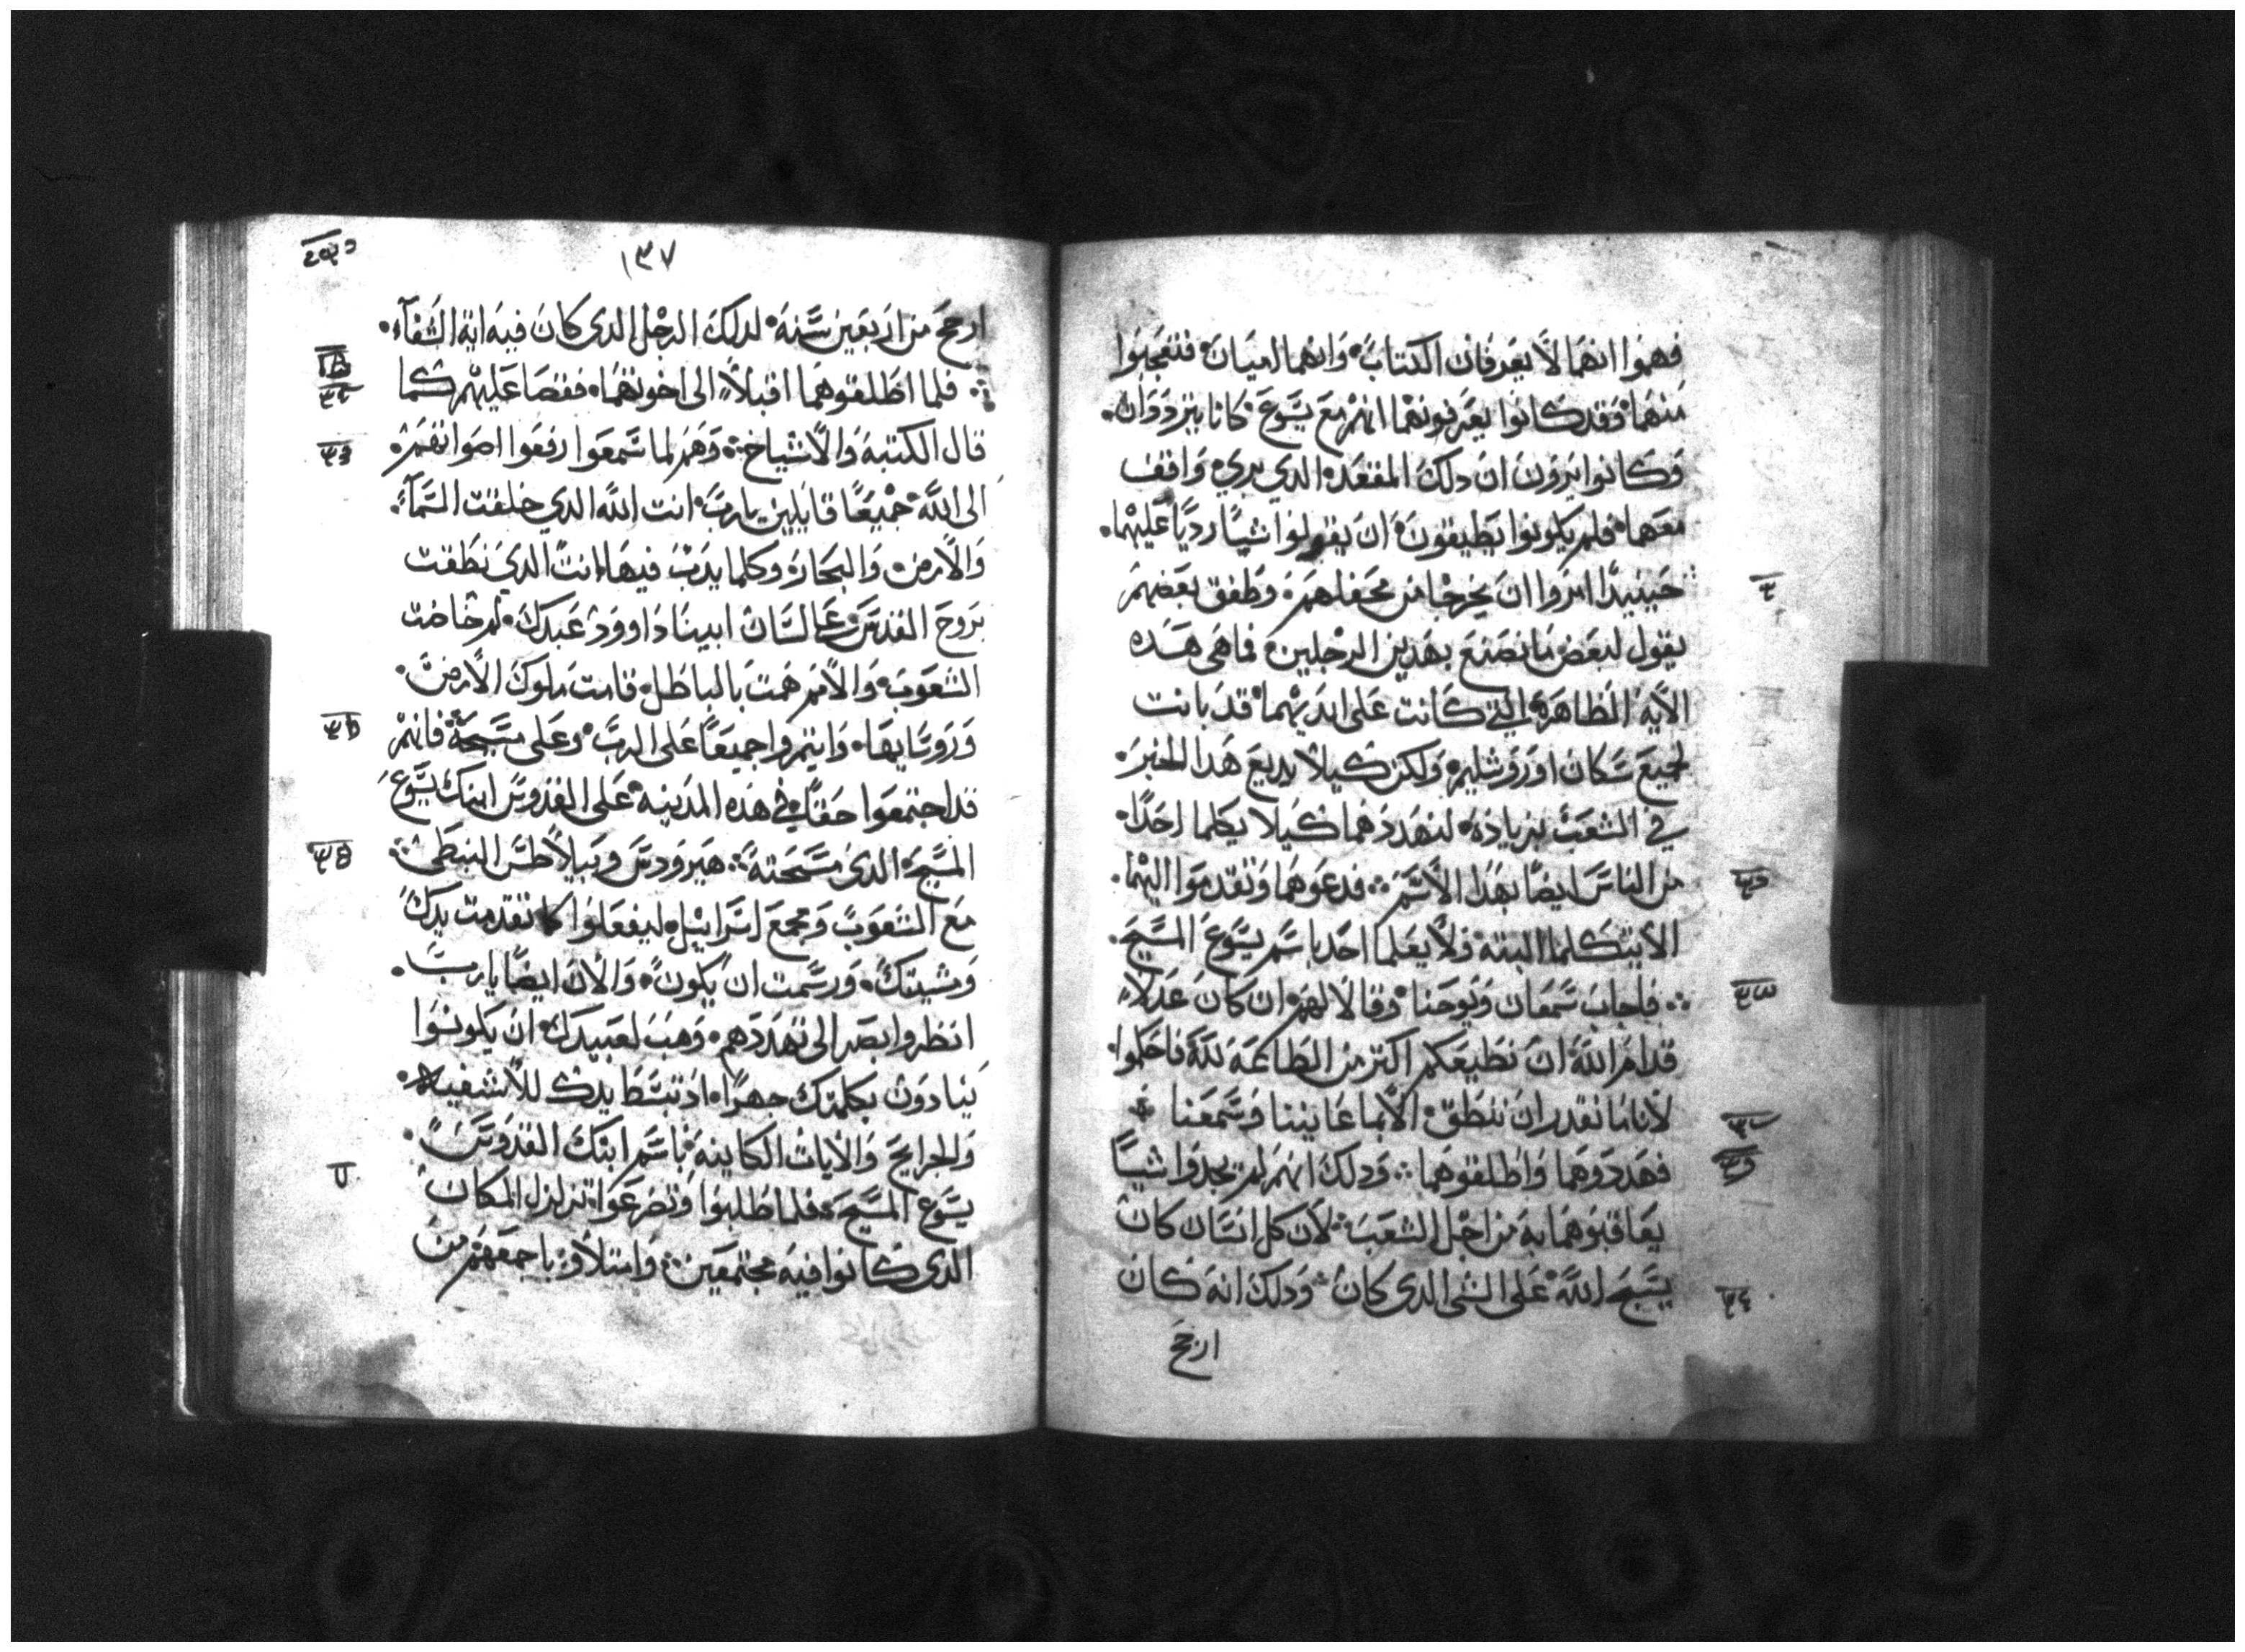 فهموا انهما لا يعرفان الكتاب وانهما اميان فتعجبوا
منهما وقد كانوا يعرفونهما انهم مع يسوع كانا يترددان
وكانوا يرون ان دلك المقعد الدي بري واقف
معهما فلم يكونوا يطيقون ان يقولوا شيا رديا عليهما
حينيدا امروا ان يخرجا من محفلهم وطفق بعضهم
يقول لبعض ما نصنع بهدين الرجلين فما هي هده
الاية الظاهرة التي كانت على ايديهما قد بانت
لجميع سكان اورشليم ولكن كيلا يديع هدا الخبر
في الشعب بزيادة لنهددهما كيلا يكلما احدا
من الناس ايضا بهدا الاسم فدعوهما وتقدموا اليهما
الا يتكلما البتة ولا يعلما احد باسم يسوع المسيح
فاجاب سمعان ويوحنا وقالا لهم ان كان عدلا
قدام الله ان نطيعكم اكتر من الطاعة لله فاحكموا
لانا ما نقدر ان ننطق الا بما عاينا وسمعنا
فهددوهما واطلقوهما ودلك انهم لم يجدوا شيا
يعاقبوهما به من اجل الشعب لان كل انسان كان
يسبح الله على الشي الدي كان ودلك انه كان
ارجح
١٣٧
ارجح من اربعين سنة لدلك الرجل الدي كان فيه اية الشفآء
فلما اطلقوهما اقبلا الى اخوتهما فقصا عليهم كما
قال الكتبة والاشياخ وهم لما سمعوا رفعوا اصواتهم
الى الله جميعا قايلين يا رب انت الله الدي خلقت السمآء
والارض والبحار وكلما يدب فيها انت الدي نطقت
بروح القدس على لسان ابينا داوود عبدك لم خاضت
الشعوب والامم همت بالباطل قامت ملوك الارض
وروسايها وايتمروا جميعا على الرب وعلى مسيحه فانهم
قد اجتمعوا حقا في هده المدينة على القدوس ابنك يسوع
المسيح الدي مسحته هيرودس وبيلاطس النبطي
مع الشعوب ومجمع اسراييل ليفعلوا كما تقدمت يدك
ومشيتك ورسمت ان يكون والان ايضا يا رب
انظر وابصر الى تهددهم وهب لعبيدك ان يكونوا
ينادون بكلمتك جهرا اد تبسط يدك للاشفية
والجرايح والايات الكاينة باسم ابنك القدوس
يسوع المسيح فلما طلبوا وتضرعوا تزلزل المكان
الدي كانوا فيه مجتمعين وامتلاو باجمعهم من